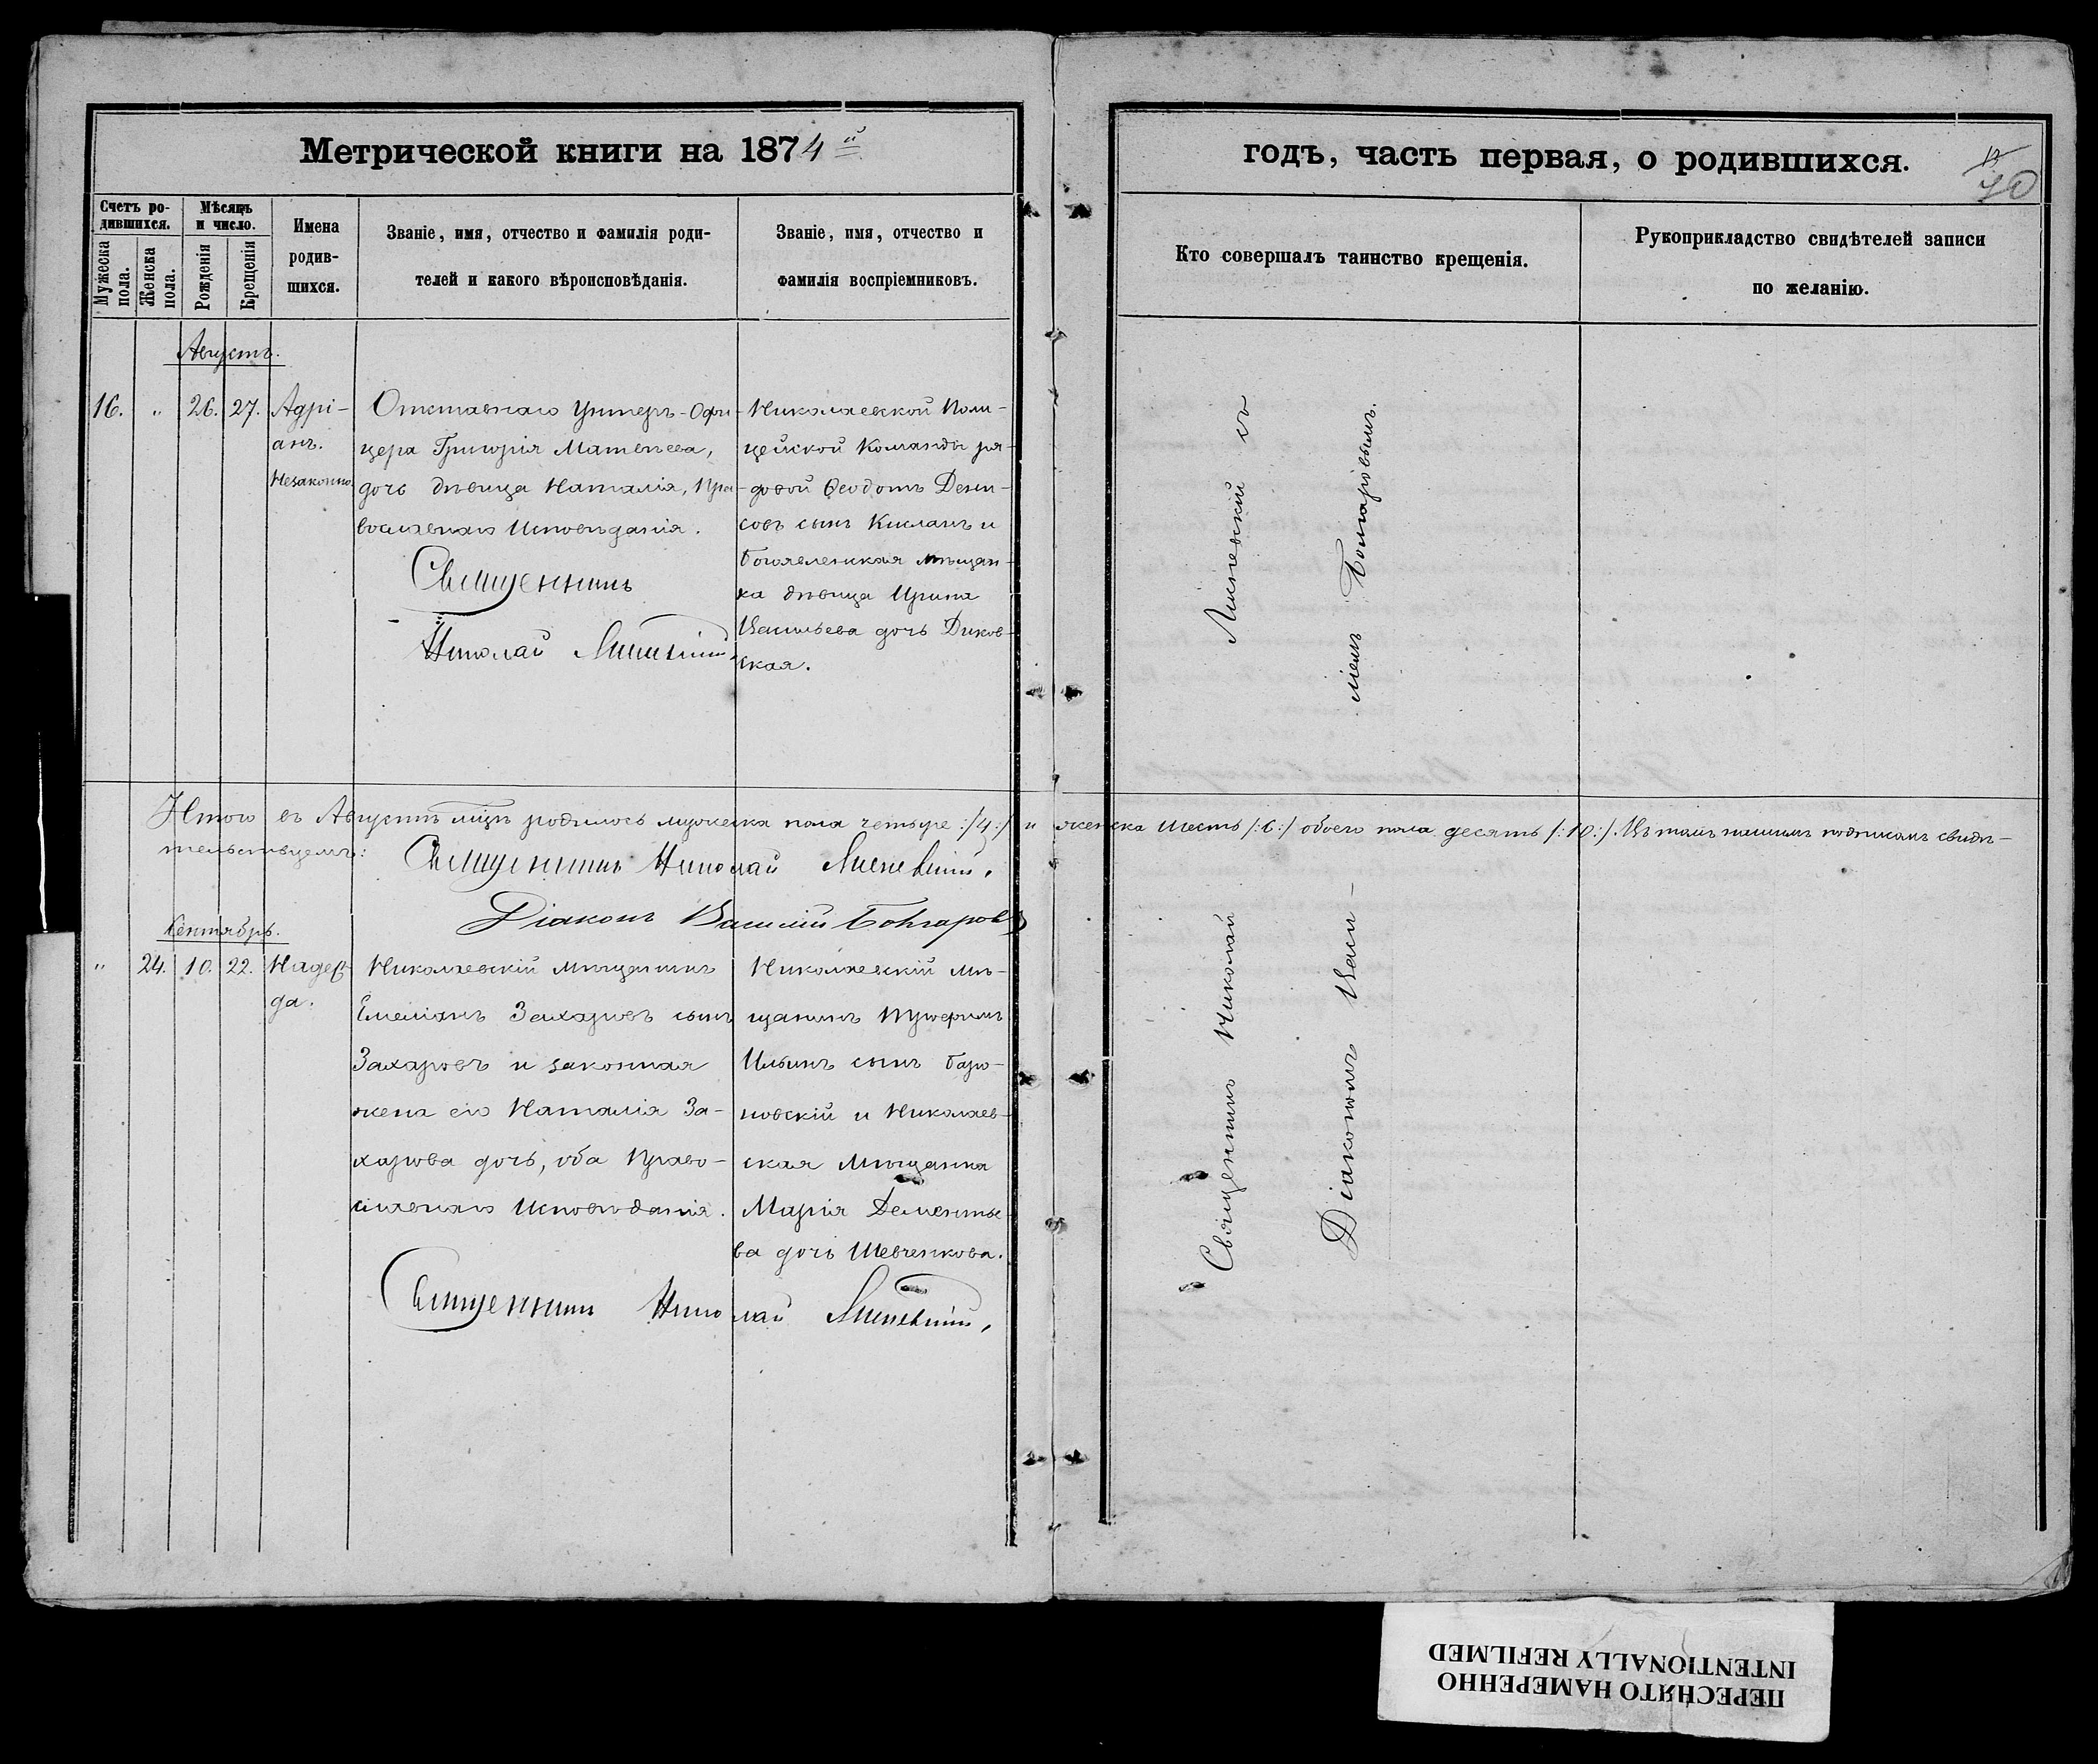 Метрической книги на 1874й
годъ, часть первая, о родившихся.
40
Счетъ ро-
дившихся.
Мужеска
пола.
Женска
пола.
Мѣсяцъ
и число.
Рожденія
Крещенія
Имена
родив-
шихся.
Званіе, имя, отчество и фамилія роди-
телей и какого вѣроисповѣданія.
Званіе, имя, отчество и
фамилія воспріемниковъ.
Кто совершалъ таинство крещенія.
Рукоприкладство свидѣтелей записи
по желанію.
Августъ.
16. " 26. 27.
Адрі-
анъ.
Незаконно.
Отставнаго Унтеръ-Офи-
цера Григорія Матвѣева,
дочь дѣвица Наталія, Пра-
вославнаго Исповѣданія.
Священникъ
Николай
Николаевской Поли-
цейской Команды ря-
довой Ѳеодотъ Дени-
совъ сынъ Кисланъ и
Богоявленская мѣщан-
ка дѣвица Ирина
Васильева дочь Диков-
ская.
Итого въ Августѣ мцѣ родилось мужеска пола четыре :/4:/ и женска шесть /:6:/ обоего пола десять /:10:/. Въ томъ нашимъ подписомъ свидѣ-
тельствуемъ:
Священникъ Николай
Діаконъ Василій Болгаровъ
Сентябрь.
" 24. 10. 22.
Надеж-
да.
Николаевскій мѣщанинъ
Емеліанъ Захаровъ сынъ
Захаровъ и законная
жена его Наталія За-
харова дочь, оба Право-
славнаго Исповѣданія.
Николаевскій мѣ-
щанинъ Трофимъ
Ильинъ сынъ Баро-
новскій и Николаев-
ская Мѣщанка
Марія Дементье-
ва дочь Шевченкова.
Священникъ Николай
Священникъ Николай съ
Діакономъ Васи-
ліемъ Болгаровымъ.
ПЕРЕСНЯТО НАМЕРЕННО
INTENTIONALLY REFILMED